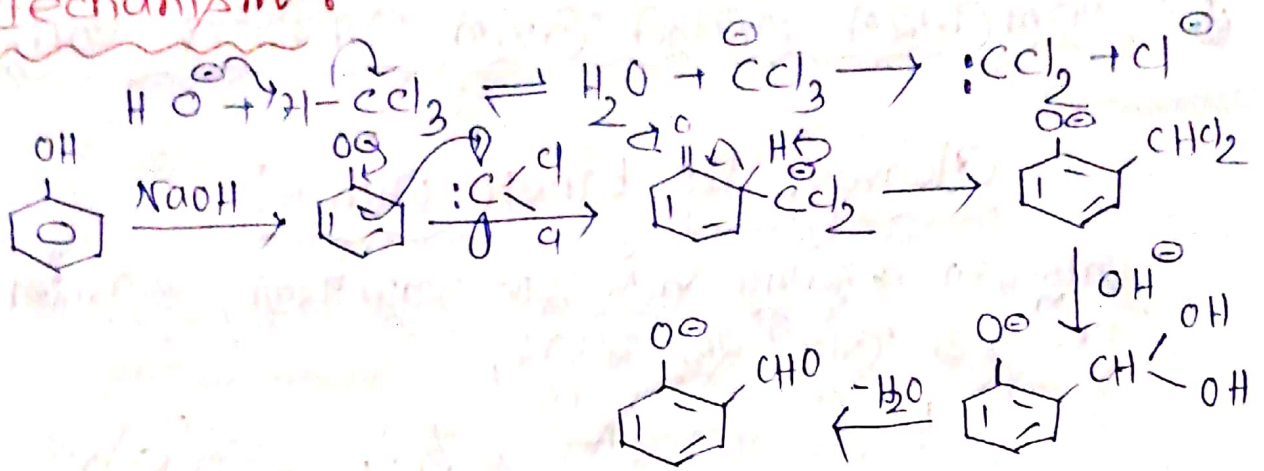 Mechanism :
H O⊖ + H-CCl3 ⇌ H2O + ⊖CCl3 → :CCl2 + Cl⊖
OH NaOH → O⊖ :C Cl Cl → O H ⊖CCl2 → O⊖ CHCl2
OH⊖
O⊖ CHO -H2O ← O⊖ CH OH OH